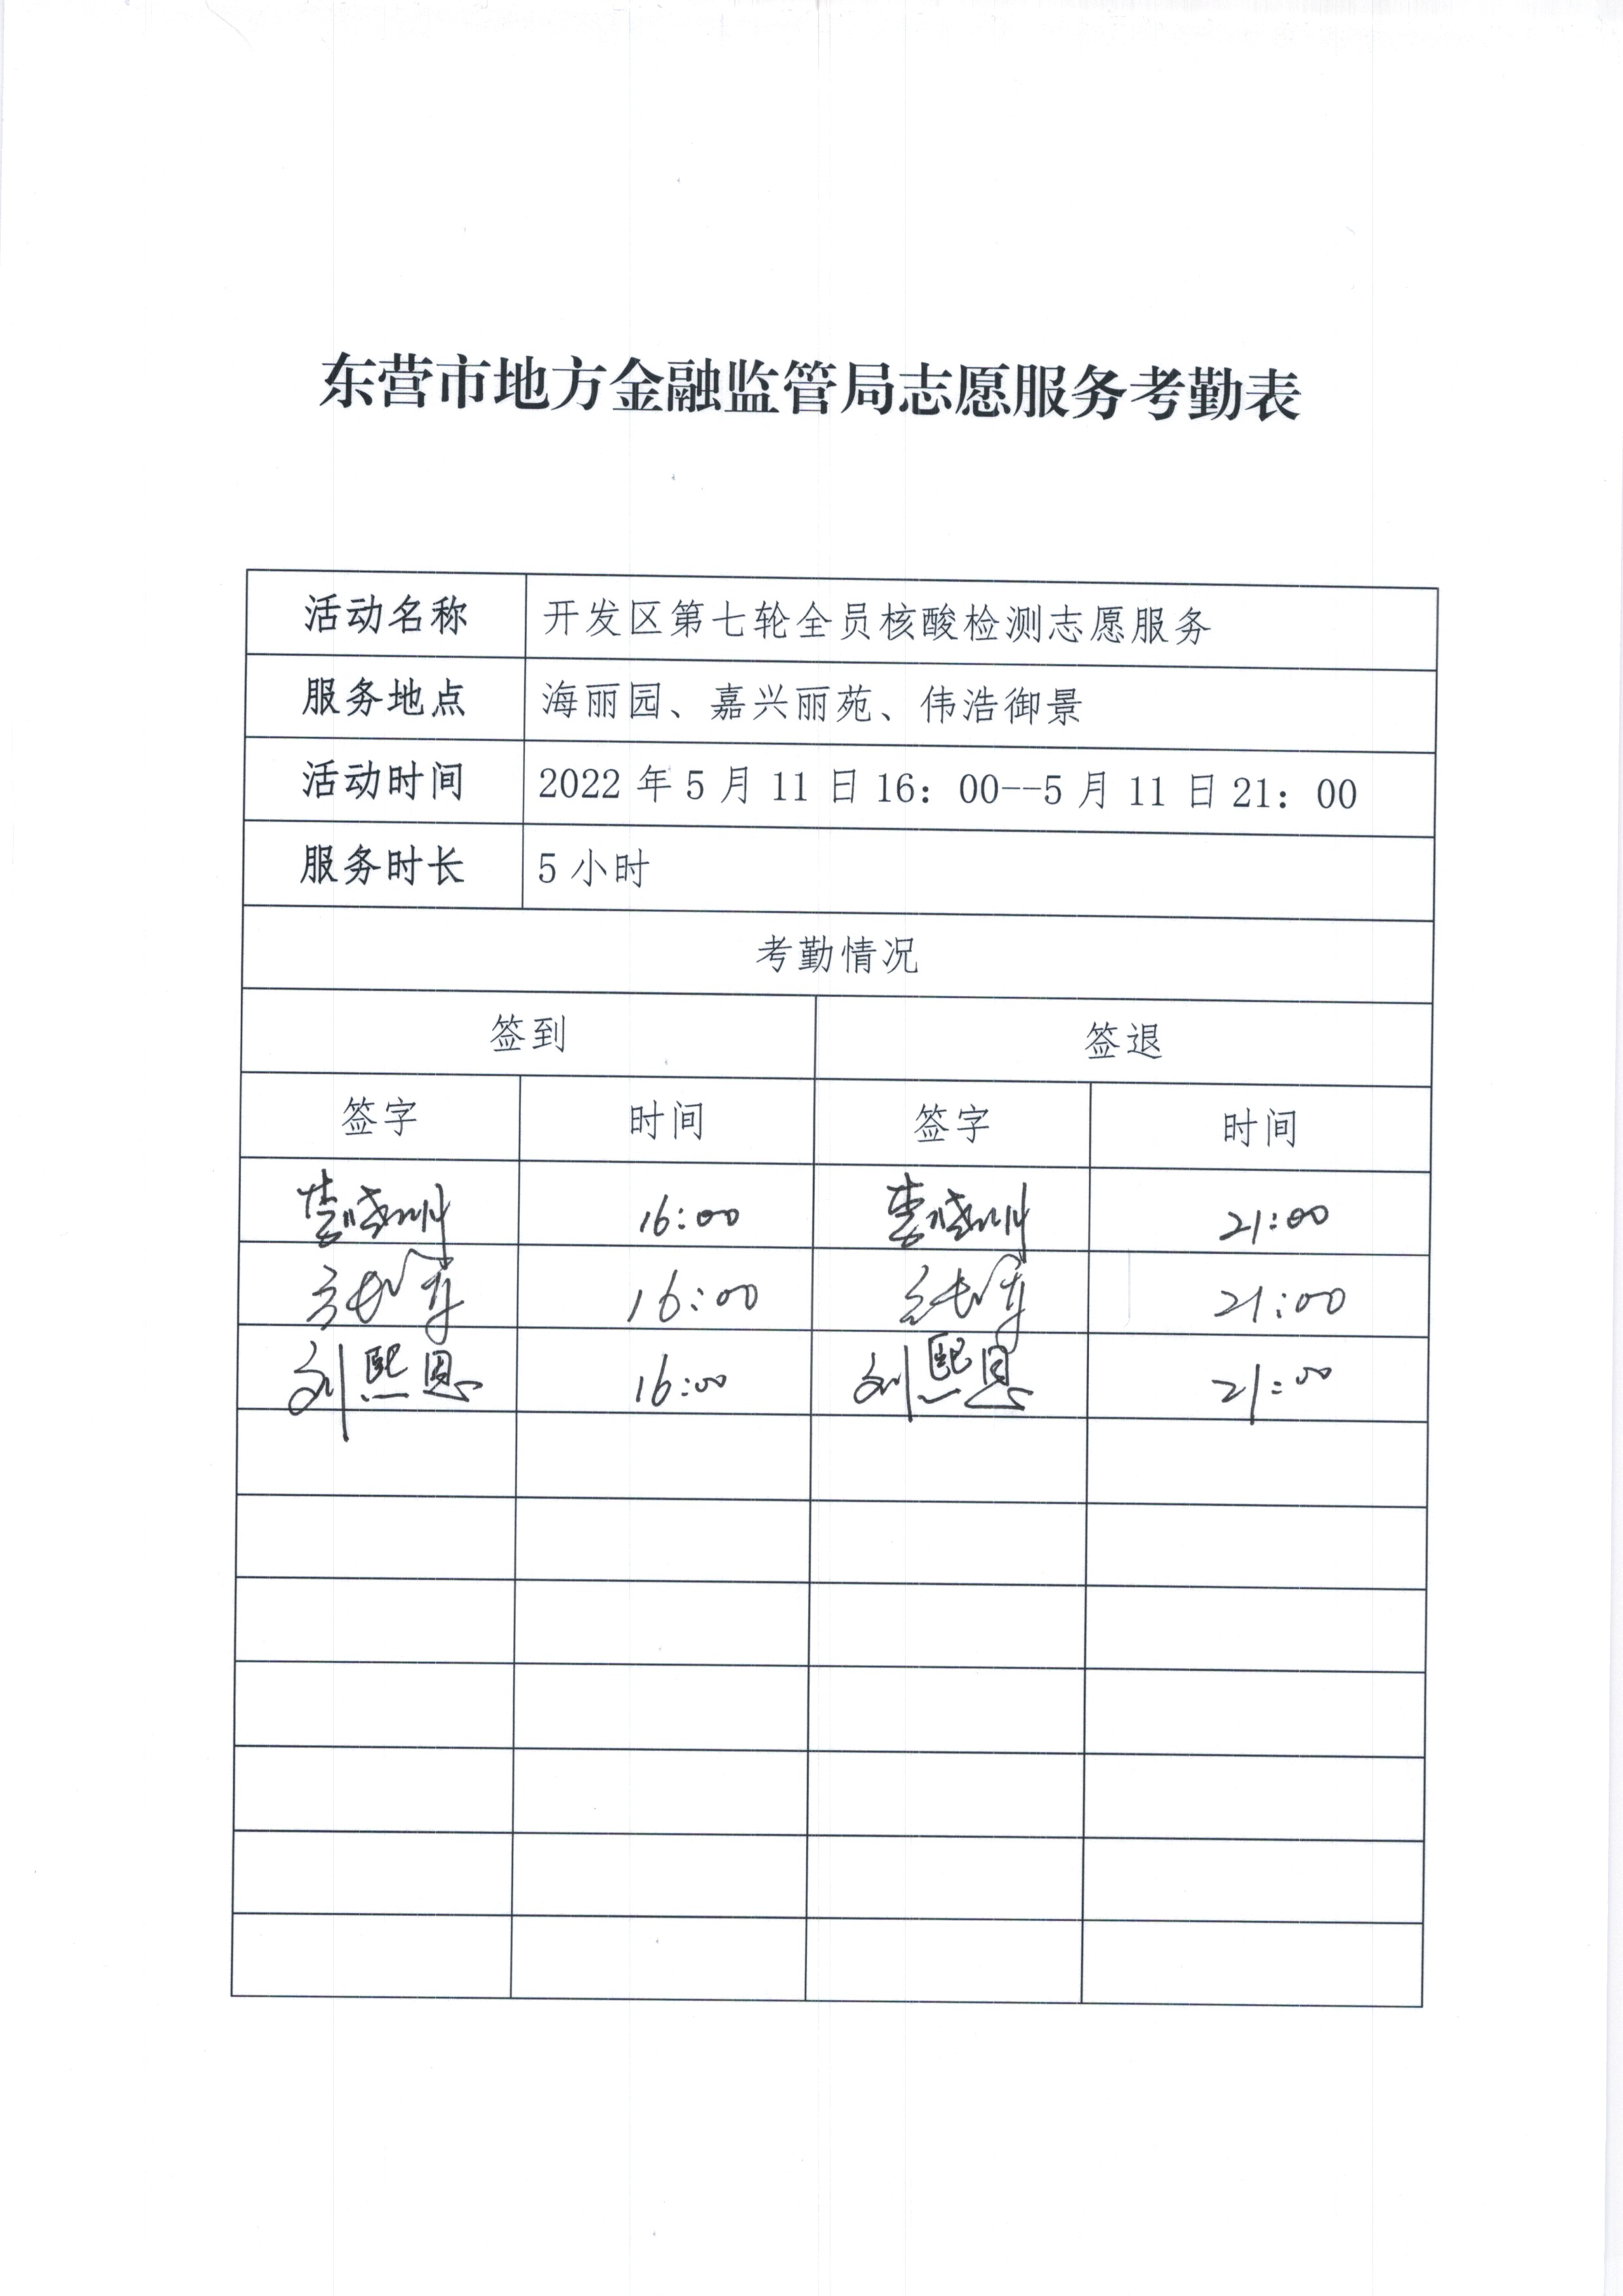 东营市地方金融监管局志愿服务考勤表
活动名称 开发区第七轮全员核酸检测志愿服务
服务地点 海丽园、嘉兴丽苑、伟浩御景
活动时间 2022年5月11日16：00--5月11日21：00
服务时长 5小时
考勤情况
签到 签退
签字 时间 签字 时间
16:00 21:00
16:00 21:00
刘熙恩 16:00 刘熙恩 21:00